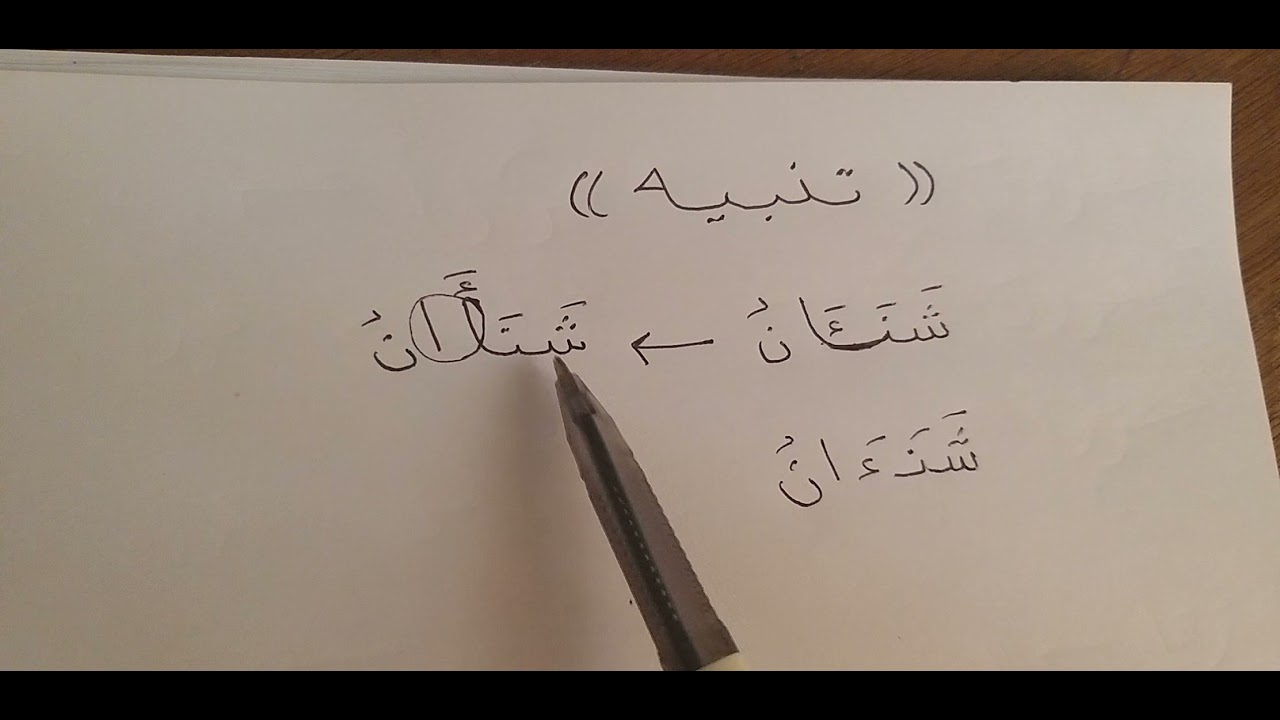 (( تنبيه ))
شَنَـَٔانُ ← شَنَأَانُ
شَنَءَانُ